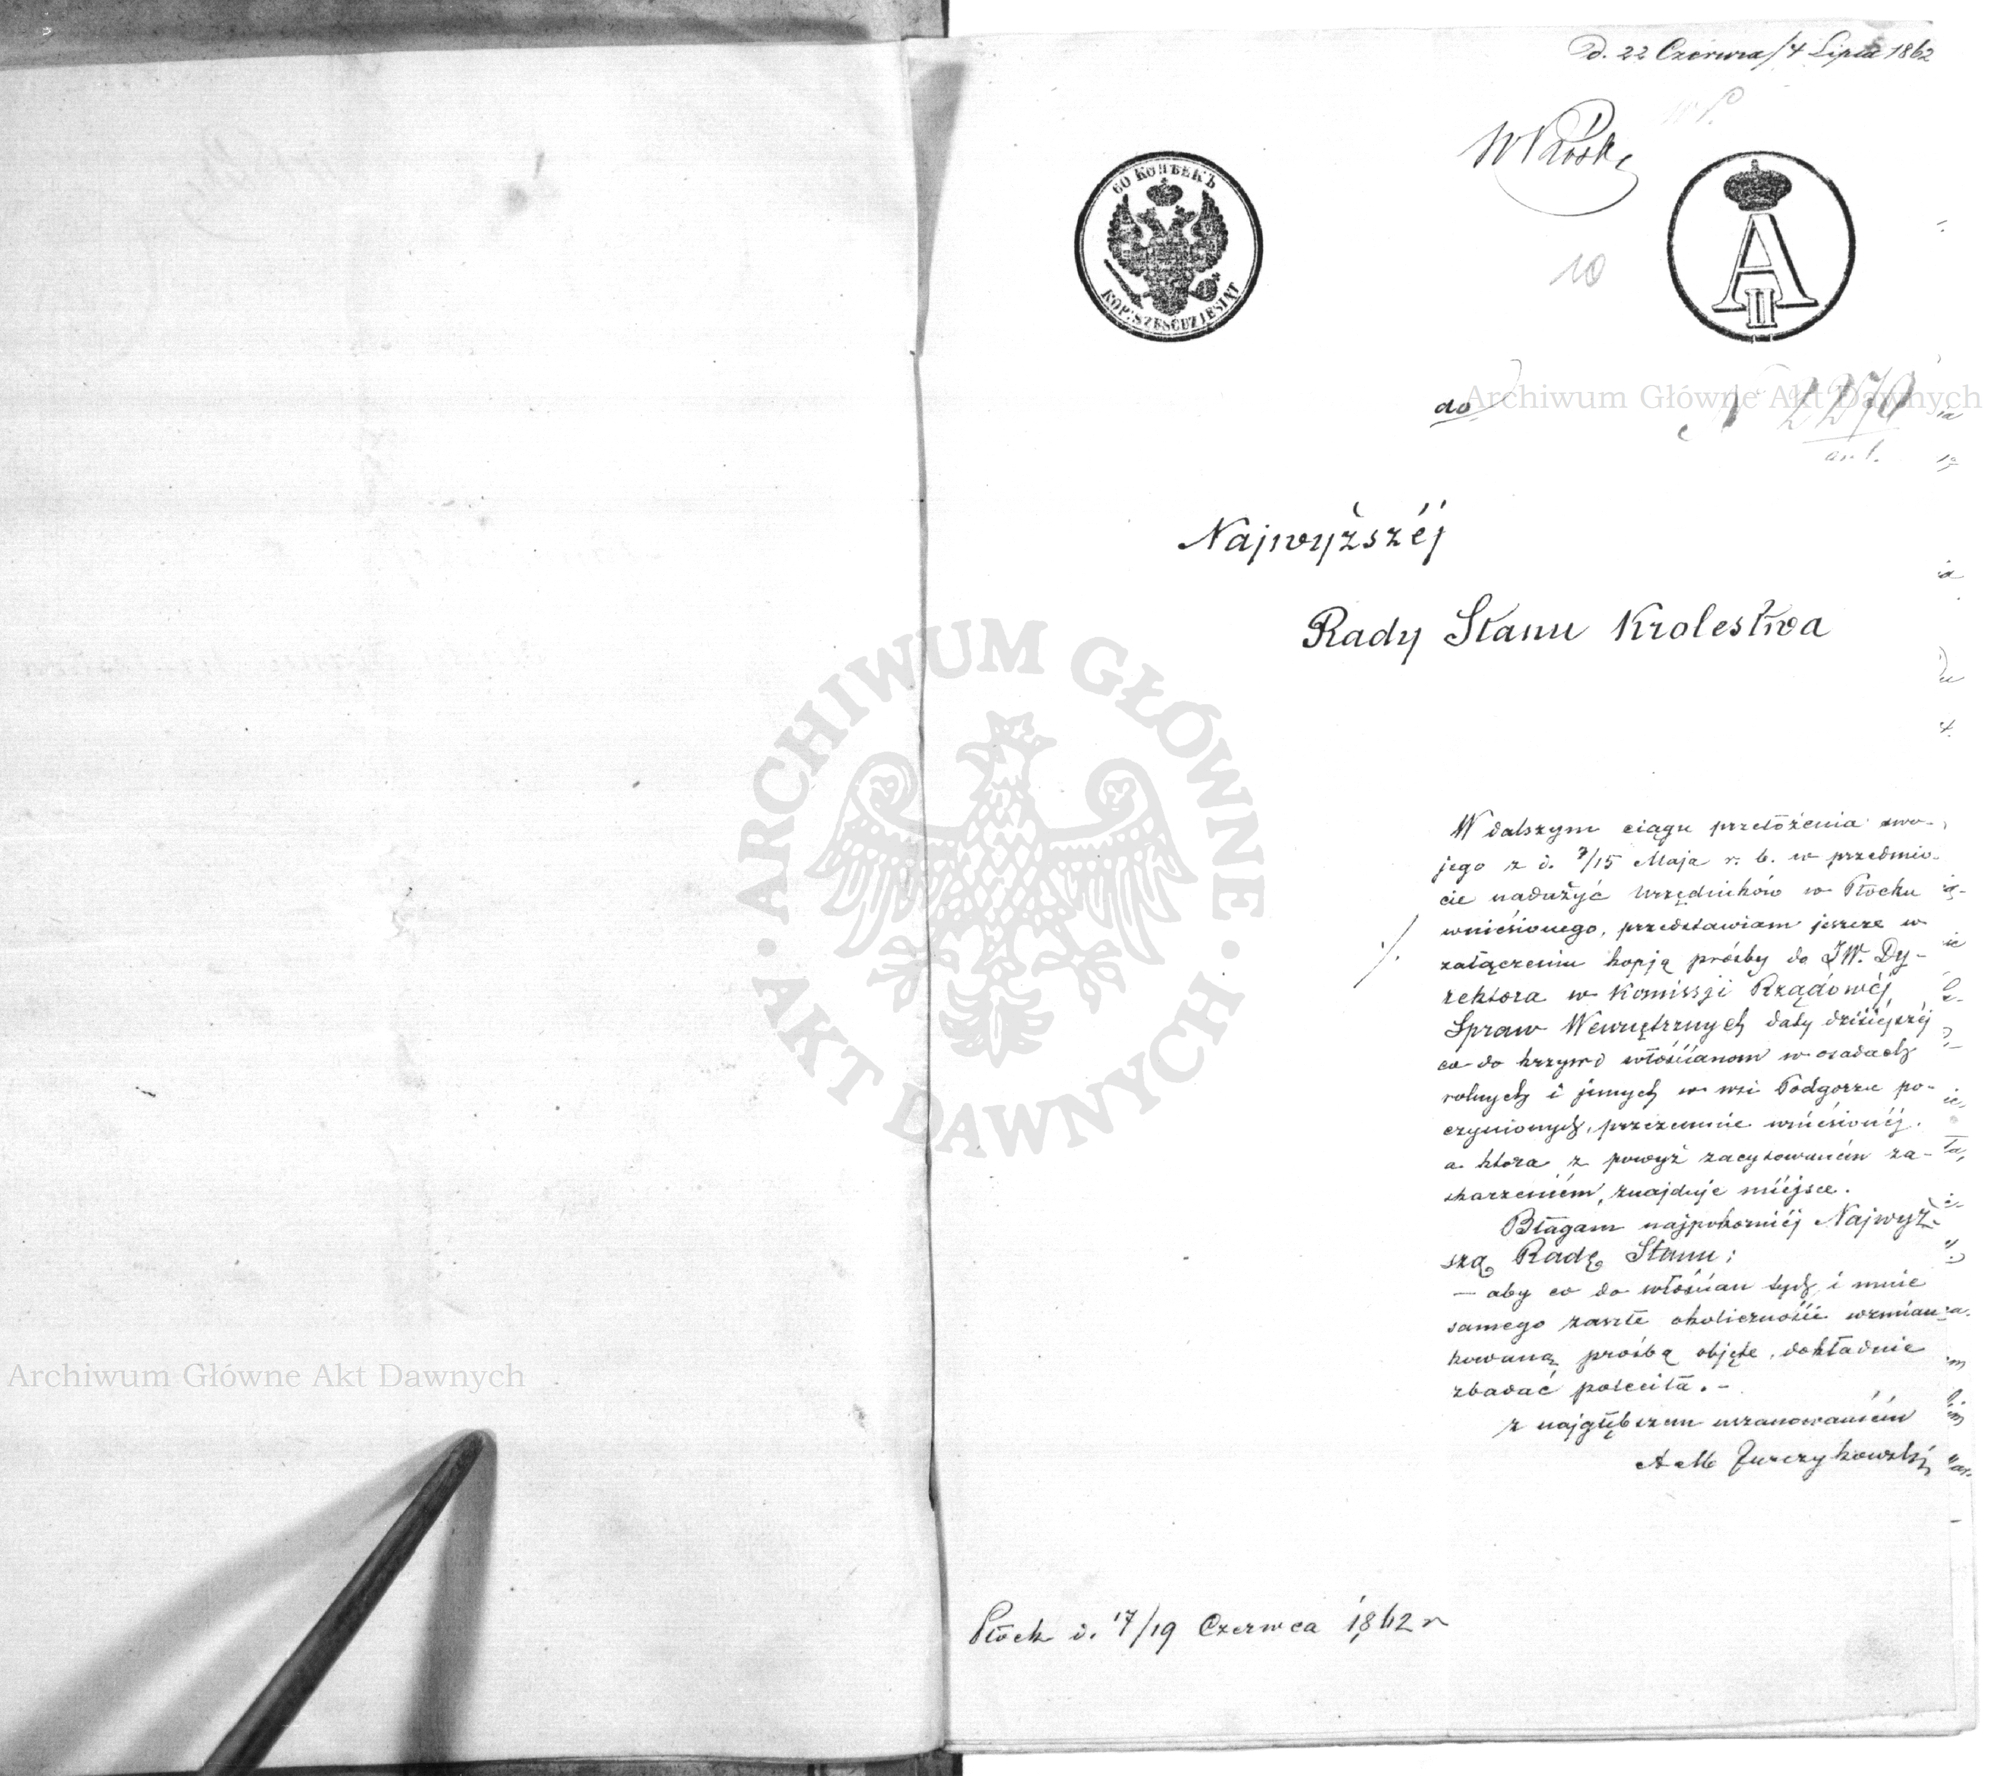 D. 22 Czerwca/4 Lipca 1862
60 КОПѢЕКЪ
KOP: SZEŚĆDZIESIĄT
A II
10
do
N 2270
Najwyższéj
Rady Stanu Krolestwa
W dalszym ciągu przełożenia swo-
jego z d. 3/15 Maja r. b. w przedmio-
cie nadużyć Urzędników w Płocku
wniesionego, przedstawiam jeszcze w
załączeniu kopją prośby do JW. Dy-
rektora w Komissji Rządówéj
Spraw Wewnętrznych daty dzisiejszéj
co do krzywd włościanom w osadach
rolnych i innych w wsi Podgorze po-
czynionych, przezemnie wniesionéj.
a ktora z powyż zacytowaniem za-
skarzeniem, znajduje miejsce.
Błagam najpokorniéj Najwyż-
szą Radę Stanu;
— aby co do włościan tych i mnie
samego zaszłe okoliczności wzmian-
kowaną prośbą objęte, dokładnie
zbadać poleciła. -
z najgłębszem uszanowaniem
A M Jurczykowski
Płock d. 17/19 Czerwca 1862 r
Archiwum Główne Akt Dawnych
ARCHIWUM GŁÓWNE · AKT DAWNYCH ·
Archiwum Główne Akt Dawnych